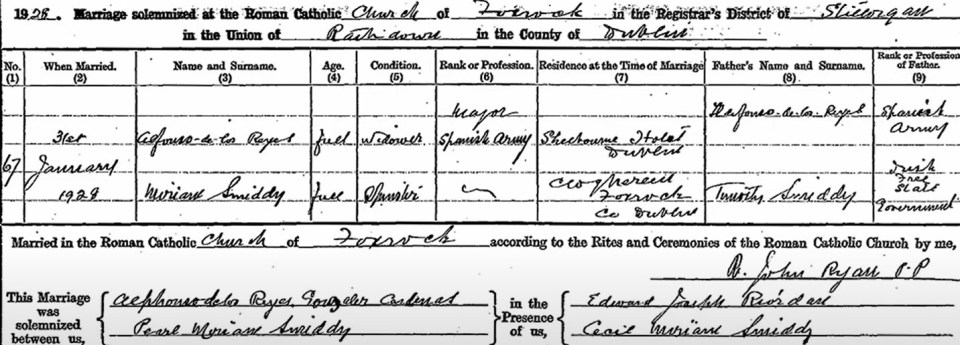 1928. Marriage solemnized at the Roman Catholic Church of Foxrock in the Registrar's District of Stillorgan
in the Union of Rathdown in the County of Dublin
No. (1) When Married. (2) Name and Surname. (3) Age. (4) Condition. (5) Rank or Profession. (6) Residence at the Time of Marriage (7) Father's Name and Surname. (8) Rank or Profession of Father. (9)
67 31st January 1928
Alfonso-de-los Reyes full Widower Major Spanish Army Shelbourne Hotel Dublin Ildefonso-de-los-Reyes Spanish Army
Moriane Smiddy full Spinster Foxrock Co Dublin Timothy Smiddy Irish Free State Government
Married in the Roman Catholic Church of Foxrock according to the Rites and Ceremonies of the Roman Catholic Church by me,
John Ryan P.P
This Marriage was solemnized between us,
Alphonso de los Reyes Gonzalez Cardenas
Pearl Moriane Smiddy
in the Presence of us,
Edward Joseph Riordan
Cecil Moriane Smiddy